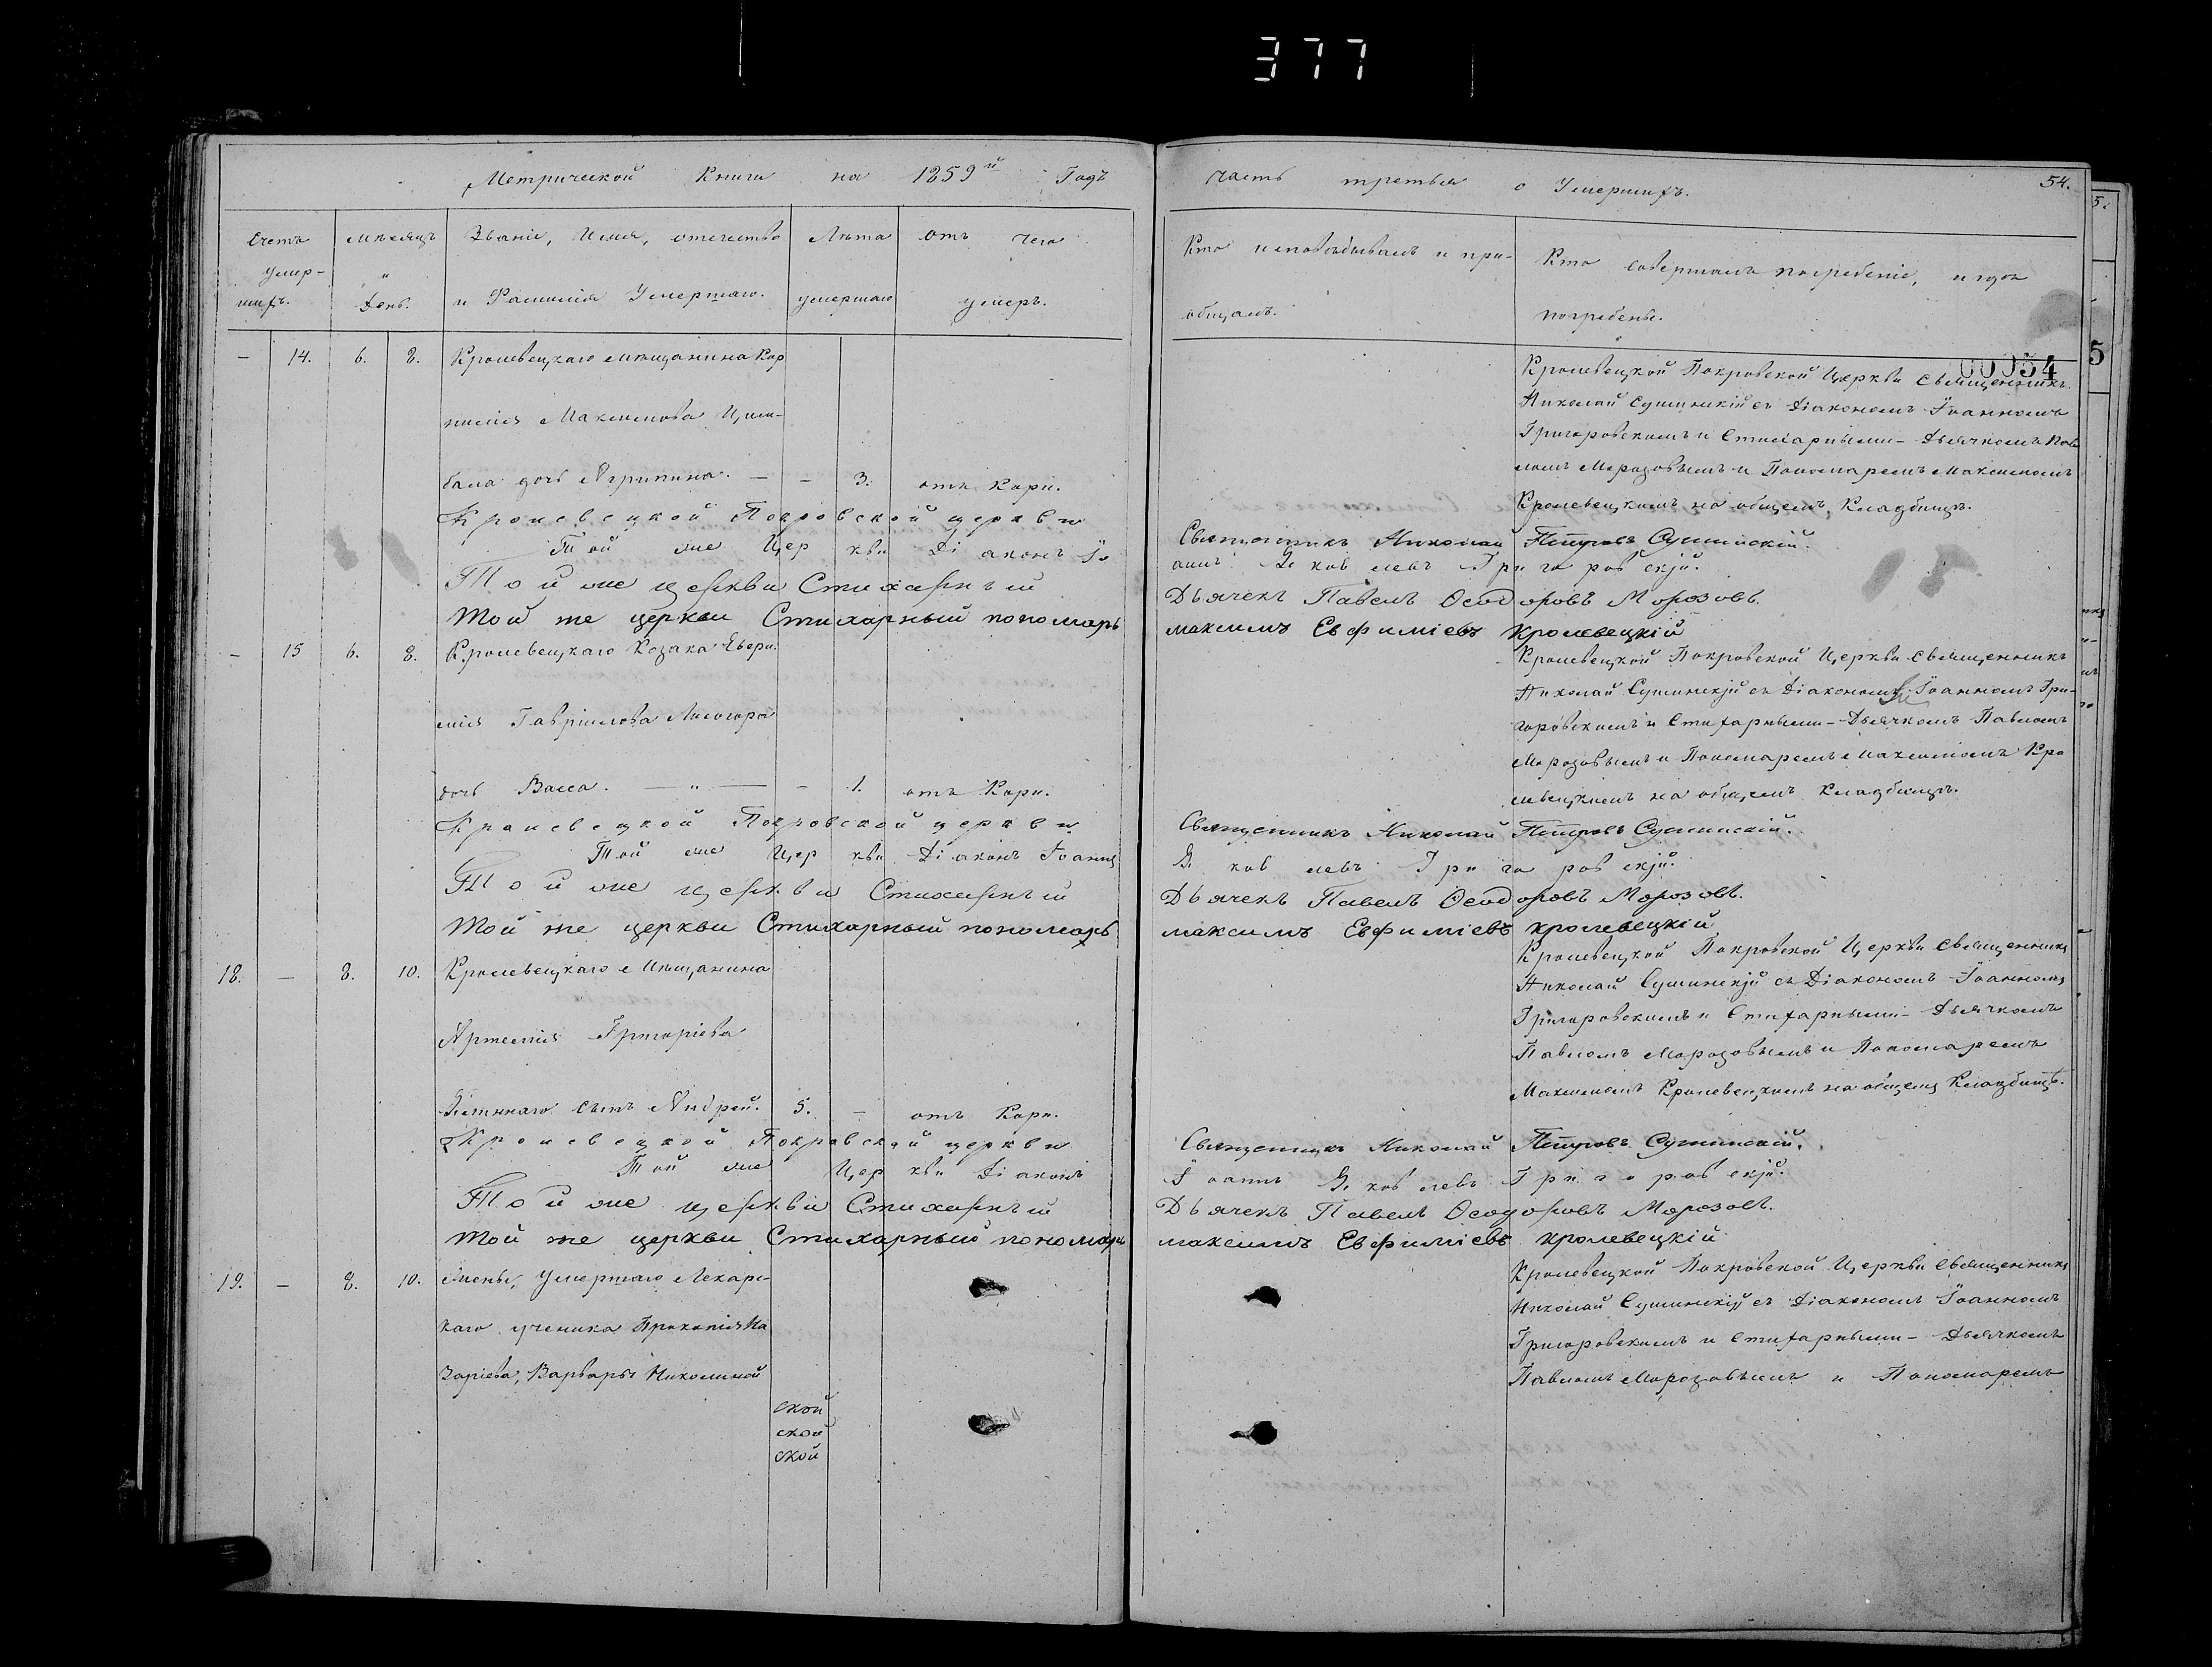 377
Метрической Книги на 1859й Годъ
часть третья о Умершихъ.
54.
Счетъ умер-
шихъ.
Мѣсяцъ
и
День.
Званіе, Имя, отечество
и Фамилія Умершаго.
Лѣта
умершаго
отъ чего
умеръ.
Кто исповѣдывалъ и при-
общалъ.
Кто совершалъ погребеніе, и гдѣ
погребены.
00054
5
— 14. 6. 8. Кролевецкаго мѣщанина Кор
нилія Максимова Цим-
бала дочь Агрипина. — — 3. отъ Кори.
Кролевецкой Покровской Церкви Священникъ
Николай Сушинскій съ Діакономъ Іоанномъ
Григоровскимъ и Стихарными - Дьячкомъ Пав
ломъ Морозовымъ и Пономаремъ Максимомъ
Кролевецкимъ на общемъ Кладбищѣ.
Кролевецкой Покровской церкви Священникъ Николай Петровъ Сушинскій.
Той же Церкви Діаконъ Іо аннъ Яковлевъ Григоровскій.
Той же церкви Стихарный Дьячекъ Павелъ Ѳеодоровъ Морозовъ.
Той же церкви Стихарный пономарь максимъ Евфиміевъ кролевецкій
— 15 6. 8. Кролевецкаго Козака Евфи.
мія Гавріилова Лисогора
дочь Васса. — " — — 1. отъ Кори.
Кролевецкой Покровской Церкви Священникъ
Николай Сушинскій съ Діакономъ Іоанномъ Гри-
горовскимъ и Стихарными - Дьячкомъ Павломъ
Морозовымъ и Пономаремъ Максимомъ Кро
левецкимъ на общемъ Кладбищѣ.
Кролевецкой Покровской церкви Священникъ Николай Петровъ Сушинскій.
Той же Церкви Діаконъ Іоаннъ Яковлевъ Григоровскій.
Той же церкви Стихарный Дьячекъ Павелъ Ѳеодоровъ Морозовъ.
Той же церкви Стихарный пономарь максимъ Евфиміевъ кролевецкій
18. — 8. 10. Кролевецкаго Мѣщанина
Артемія Григоріева
сынъ Андрей. 5. — отъ Кори.
Кролевецкой Покровской Церкви Священникъ
Николай Сушинскій съ Діакономъ Іоанномъ
Григоровскимъ и Стихарными - Дьячкомъ
Павломъ Морозовымъ и Пономаремъ
Максимомъ Кролевецкимъ на общемъ Кладбищѣ.
Кролевецкой Покровской церкви Священникъ Николай Петровъ Сушинскій.
Той же Церкви Діаконъ Іоаннъ Яковлевъ Григоровскій.
Той же церкви Стихарный Дьячекъ Павелъ Ѳеодоровъ Морозовъ.
Той же церкви Стихарный пономарь максимъ Евфиміевъ кролевецкій
19. — 8. 10. жены, Умершаго Лекарс-
каго ученика Прокопія На
заріева, Варвары Николиной
Кролевецкой Покровской Церкви Священникъ
Николай Сушинскій съ Діакономъ Іоанномъ
Григоровскимъ и Стихарными - Дьячкомъ
Павломъ Морозовымъ и Пономаремъ
ской
ской
ской